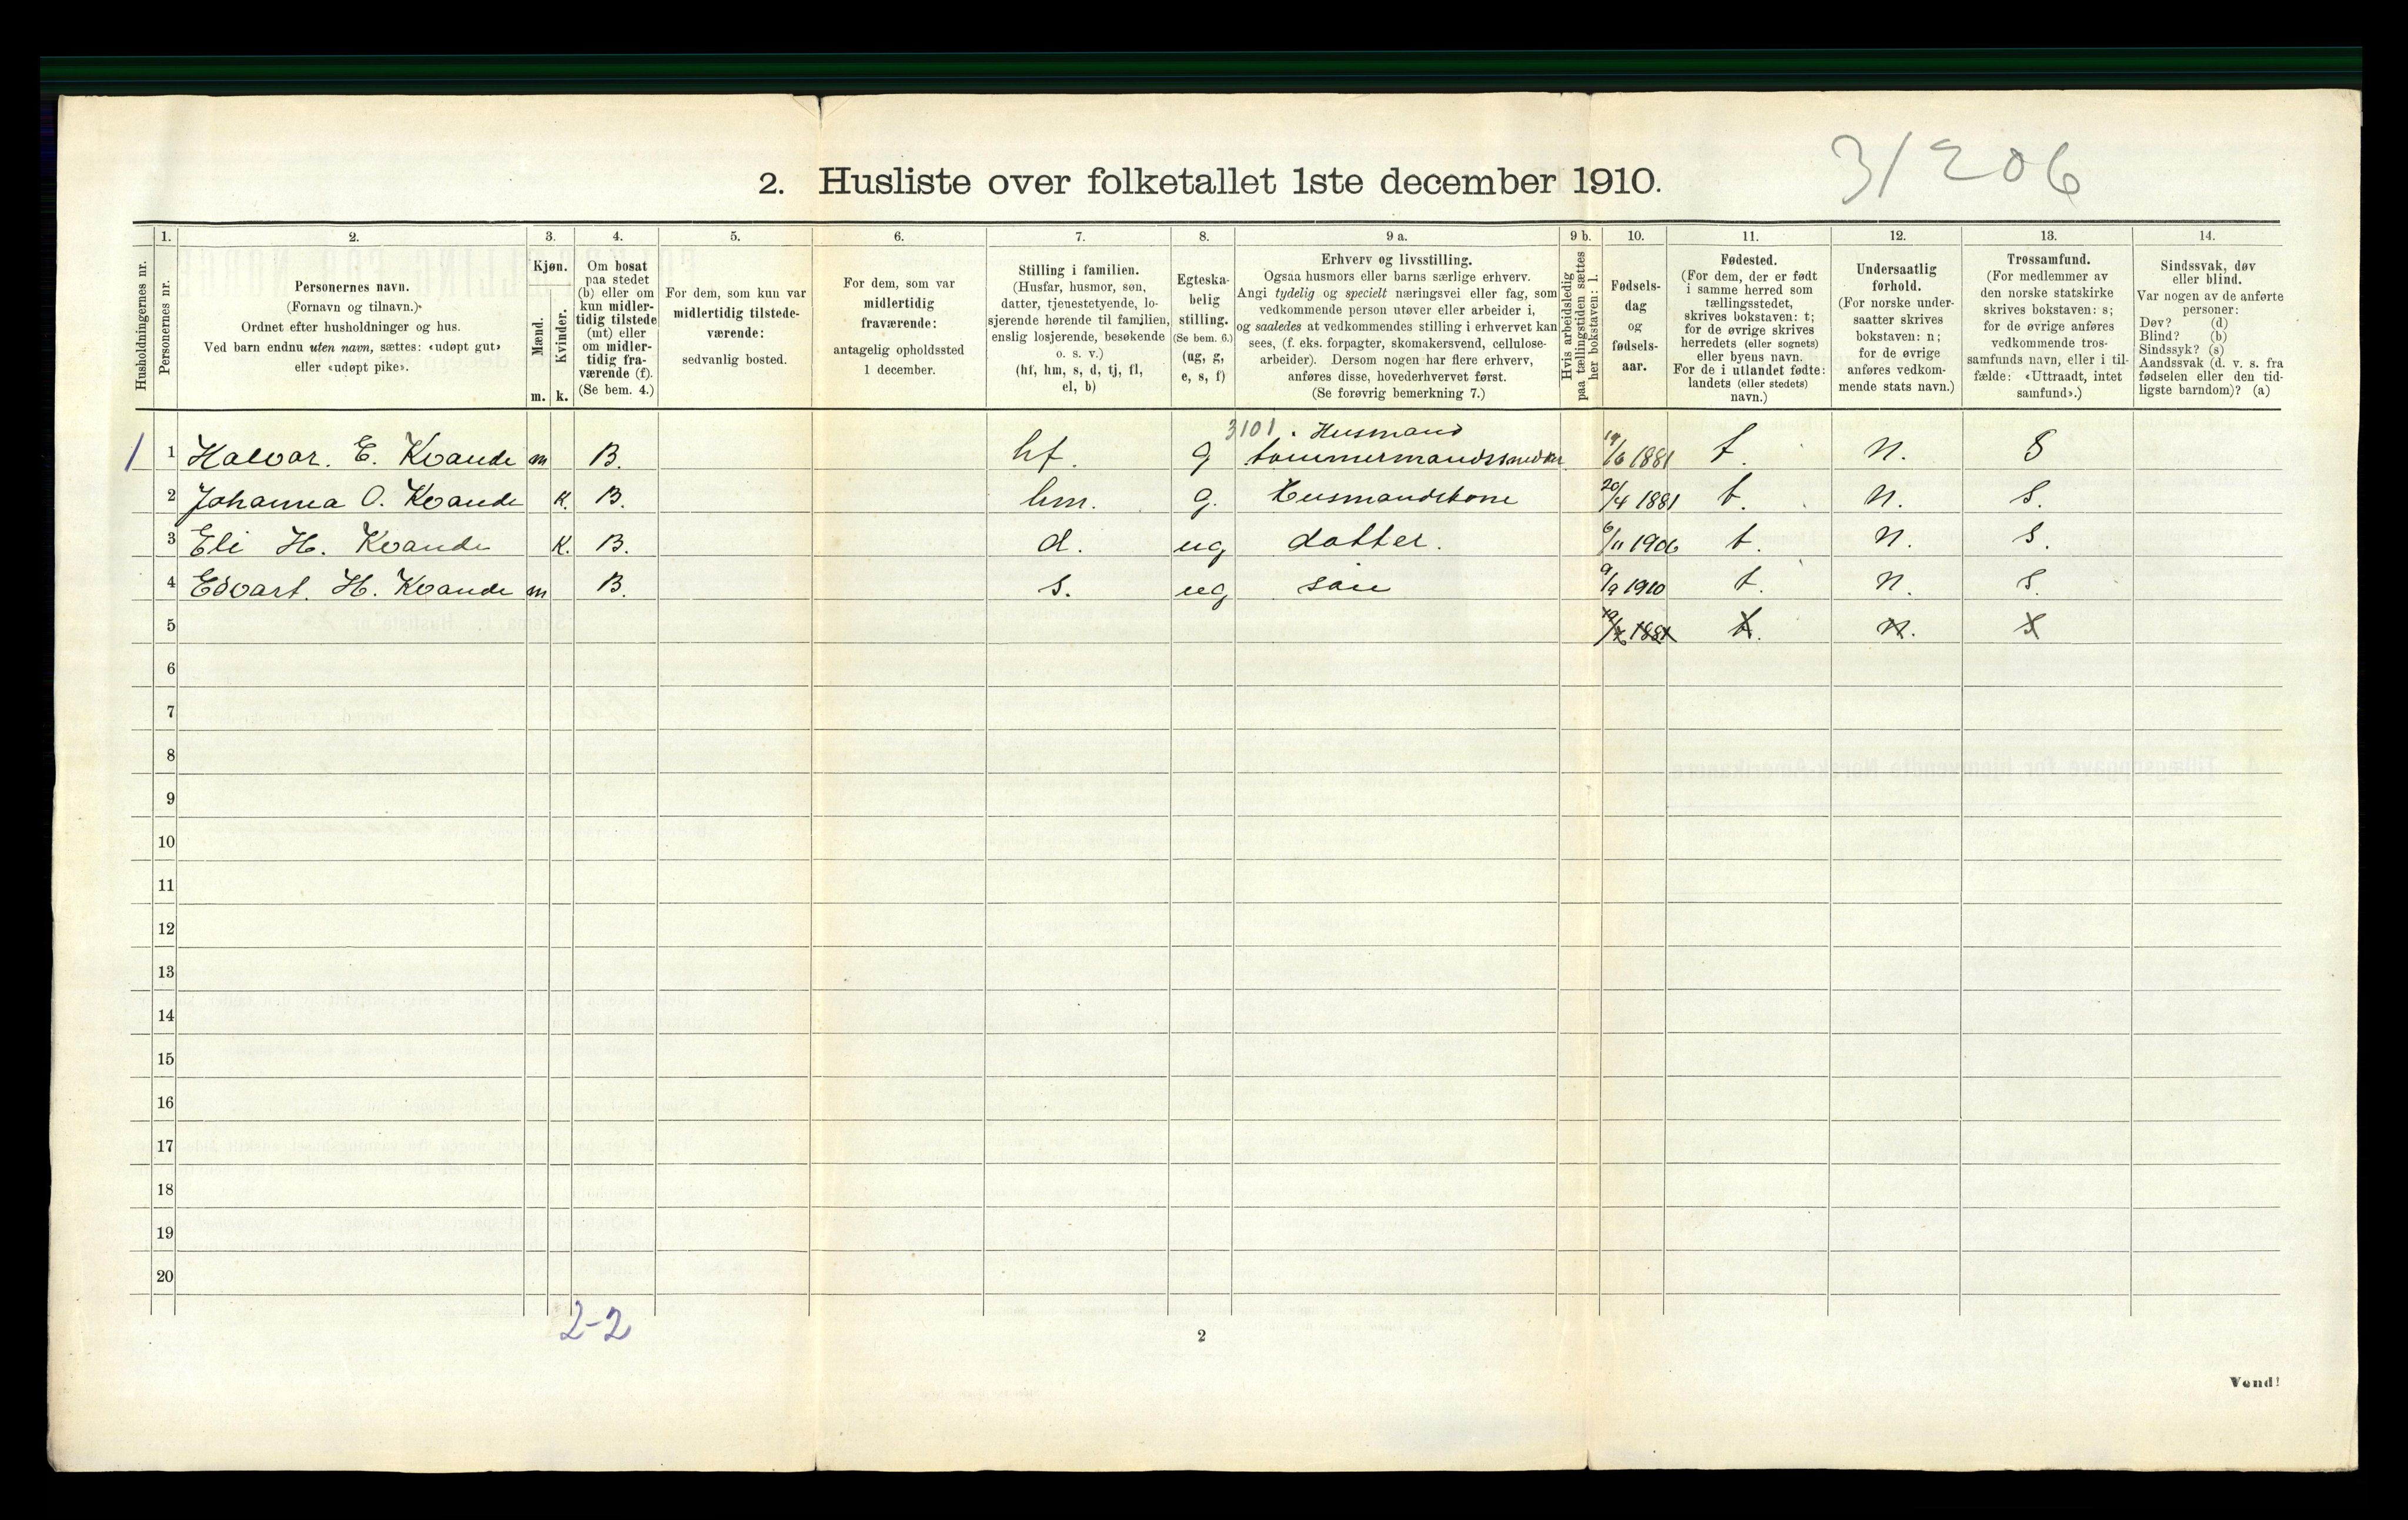 31206
2. Husliste over folketallet 1ste december 1910.
Husholdningernes nr.
1.
Personernes nr.
2.
Personernes navn.
(Fornavn og tilnavn.)
Ordnet efter husholdninger og hus.
Ved barn endnu uten navn, sættes: «udøpt gut»
eller «udøpt pike».
3.
Kjøn.
Mænd.
Kvinder.
m. k.
4.
Om bosat
paa stedet
(b) eller om
kun midler-
tidig tilstede
(mt) eller
om midler-
tidig fra-
værende (f).
(Se bem. 4.)
5.
For dem, som kun var
midlertidig tilstede-
værende:
sedvanlig bosted.
6.
For dem, som var
midlertidig
fraværende:
antagelig opholdssted
1 december.
7.
Stilling i familien.
(Husfar, husmor, søn,
datter, tjenestetyende, lo-
sjerende hørende til familien,
enslig losjerende, besøkende
o. s. v.)
(hf, hm, s, d, tj, fl,
el, b)
8.
Egteska-
belig
stilling.
(Se bem. 6.)
(ug, g,
e, s, f)
9 a.
Erhverv og livsstilling.
Ogsaa husmors eller barns særlige erhverv.
Angi tydelig og specielt næringsvei eller fag, som
vedkommende person utøver eller arbeider i,
og saaledes at vedkommendes stilling i erhvervet kan
sees, (f. eks. forpagter, skomakersvend, cellulose-
arbeider). Dersom nogen har flere erhverv,
anføres disse, hovederhvervet først.
(Se forøvrig bemerkning 7.)
9 b.
Hvis arbeidsledig
paa tællingstiden sættes
her bokstaven: l.
10.
Fødsels-
dag
og
fødsels-
aar.
11.
Fødested.
(For dem, der er født
i samme herred som
tællingsstedet,
skrives bokstaven: t;
for de øvrige skrives
herredets (eller sognets)
eller byens navn.
For de i utlandet fødte:
landets (eller stedets)
navn.)
12.
Undersaatlig
forhold.
(For norske under-
saatter skrives
bokstaven: n;
for de øvrige
anføres vedkom-
mende stats navn.)
13.
Trossamfund.
(For medlemmer av
den norske statskirke
skrives bokstaven: s;
for de øvrige anføres
vedkommende tros-
samfunds navn, eller i til-
fælde: «Uttraadt, intet
samfund».)
14.
Sindssvak, døv
eller blind.
Var nogen av de anførte
personer:
Døv? (d)
Blind? (b)
Sindssyk? (s)
Aandssvak (d. v. s. fra
fødselen eller den tid-
ligste barndom)? (a)
3101 . Husmand
1 1 Halvor. E. Kvande m B. hf. g tømmermandssnedker 14/6 1881 t. n. S
2 Johanna O. Kvande K. B. hm. g. Husmandskone 20/4 1881 t. n. S.
3 Eli H. Kvande K. B. d. ug datter. 6/11 1906 t. n. S.
4 Edvart. H. Kvande m B. s. ug søn 9/9 1910 t. n. S.
5 1881 t. n. S
6
7
8
9
10
11
12
13
14
15
16
17
18
19
20
2-2
2
Vend!